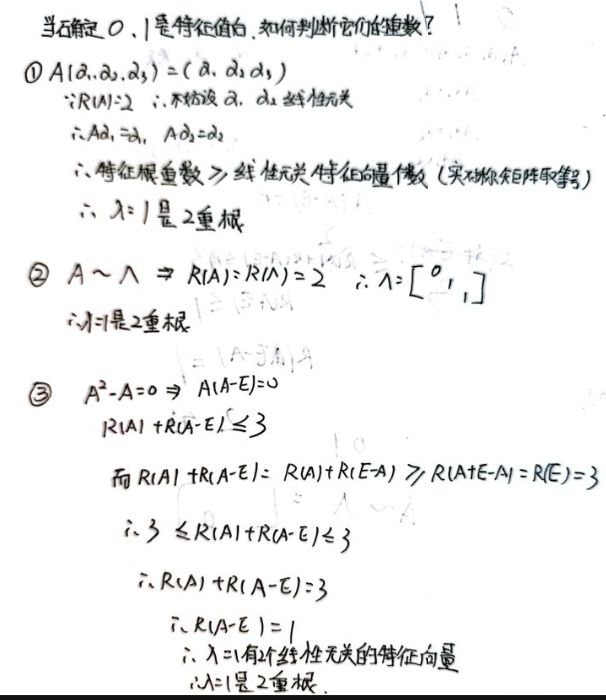 当确定0、1是特征值后，如何判断它们的重数？
① A(α₁,α₂,α₃)=(α₁ α₂ α₃)
∵R(A)=2 ∴不妨设 α₁ α₂ 线性无关
∴Aα₁=α₁, Aα₂=α₂
∴特征根重数≥线性无关特征向量个数（实对称矩阵取等号）
∴ λ=1是2重根
② A~Λ ⇒ R(A)=R(Λ)=2 ∴Λ=[0 1 1]
∴λ=1是2重根
③ A²-A=0 ⇒ A(A-E)=0
R(A)+R(A-E)≤3
而R(A)+R(A-E)=R(A)+R(E-A)≥R(A+E-A)=R(E)=3
∴3≤R(A)+R(A-E)≤3
∴R(A)+R(A-E)=3
∴R(A-E)=1
∴λ=1有2个线性无关的特征向量
∴λ=1是2重根.